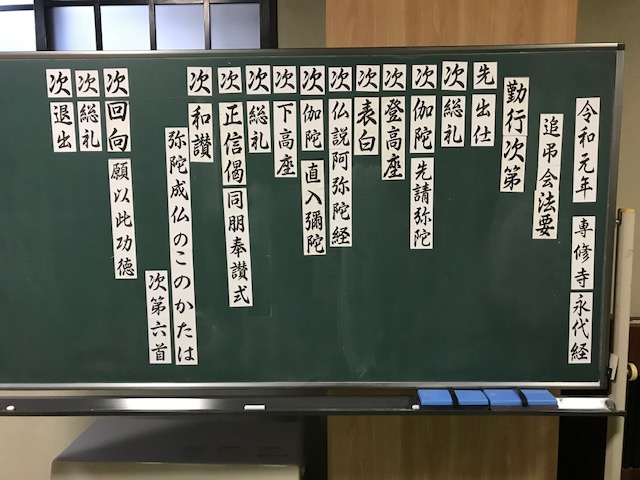 令和元年 専修寺 永代経
追弔会法要
勤行次第
先 出仕
次 総礼
次 伽陀 先請弥陀
次 登高座
次 表白
次 仏説阿弥陀経
次 伽陀 直入彌陀
次 下高座
次 総礼
次 正信偈 同朋奉讃式
次 和讃
弥陀成仏のこのかたは
次第六首
次 回向 願以此功徳
次 総礼
次 退出